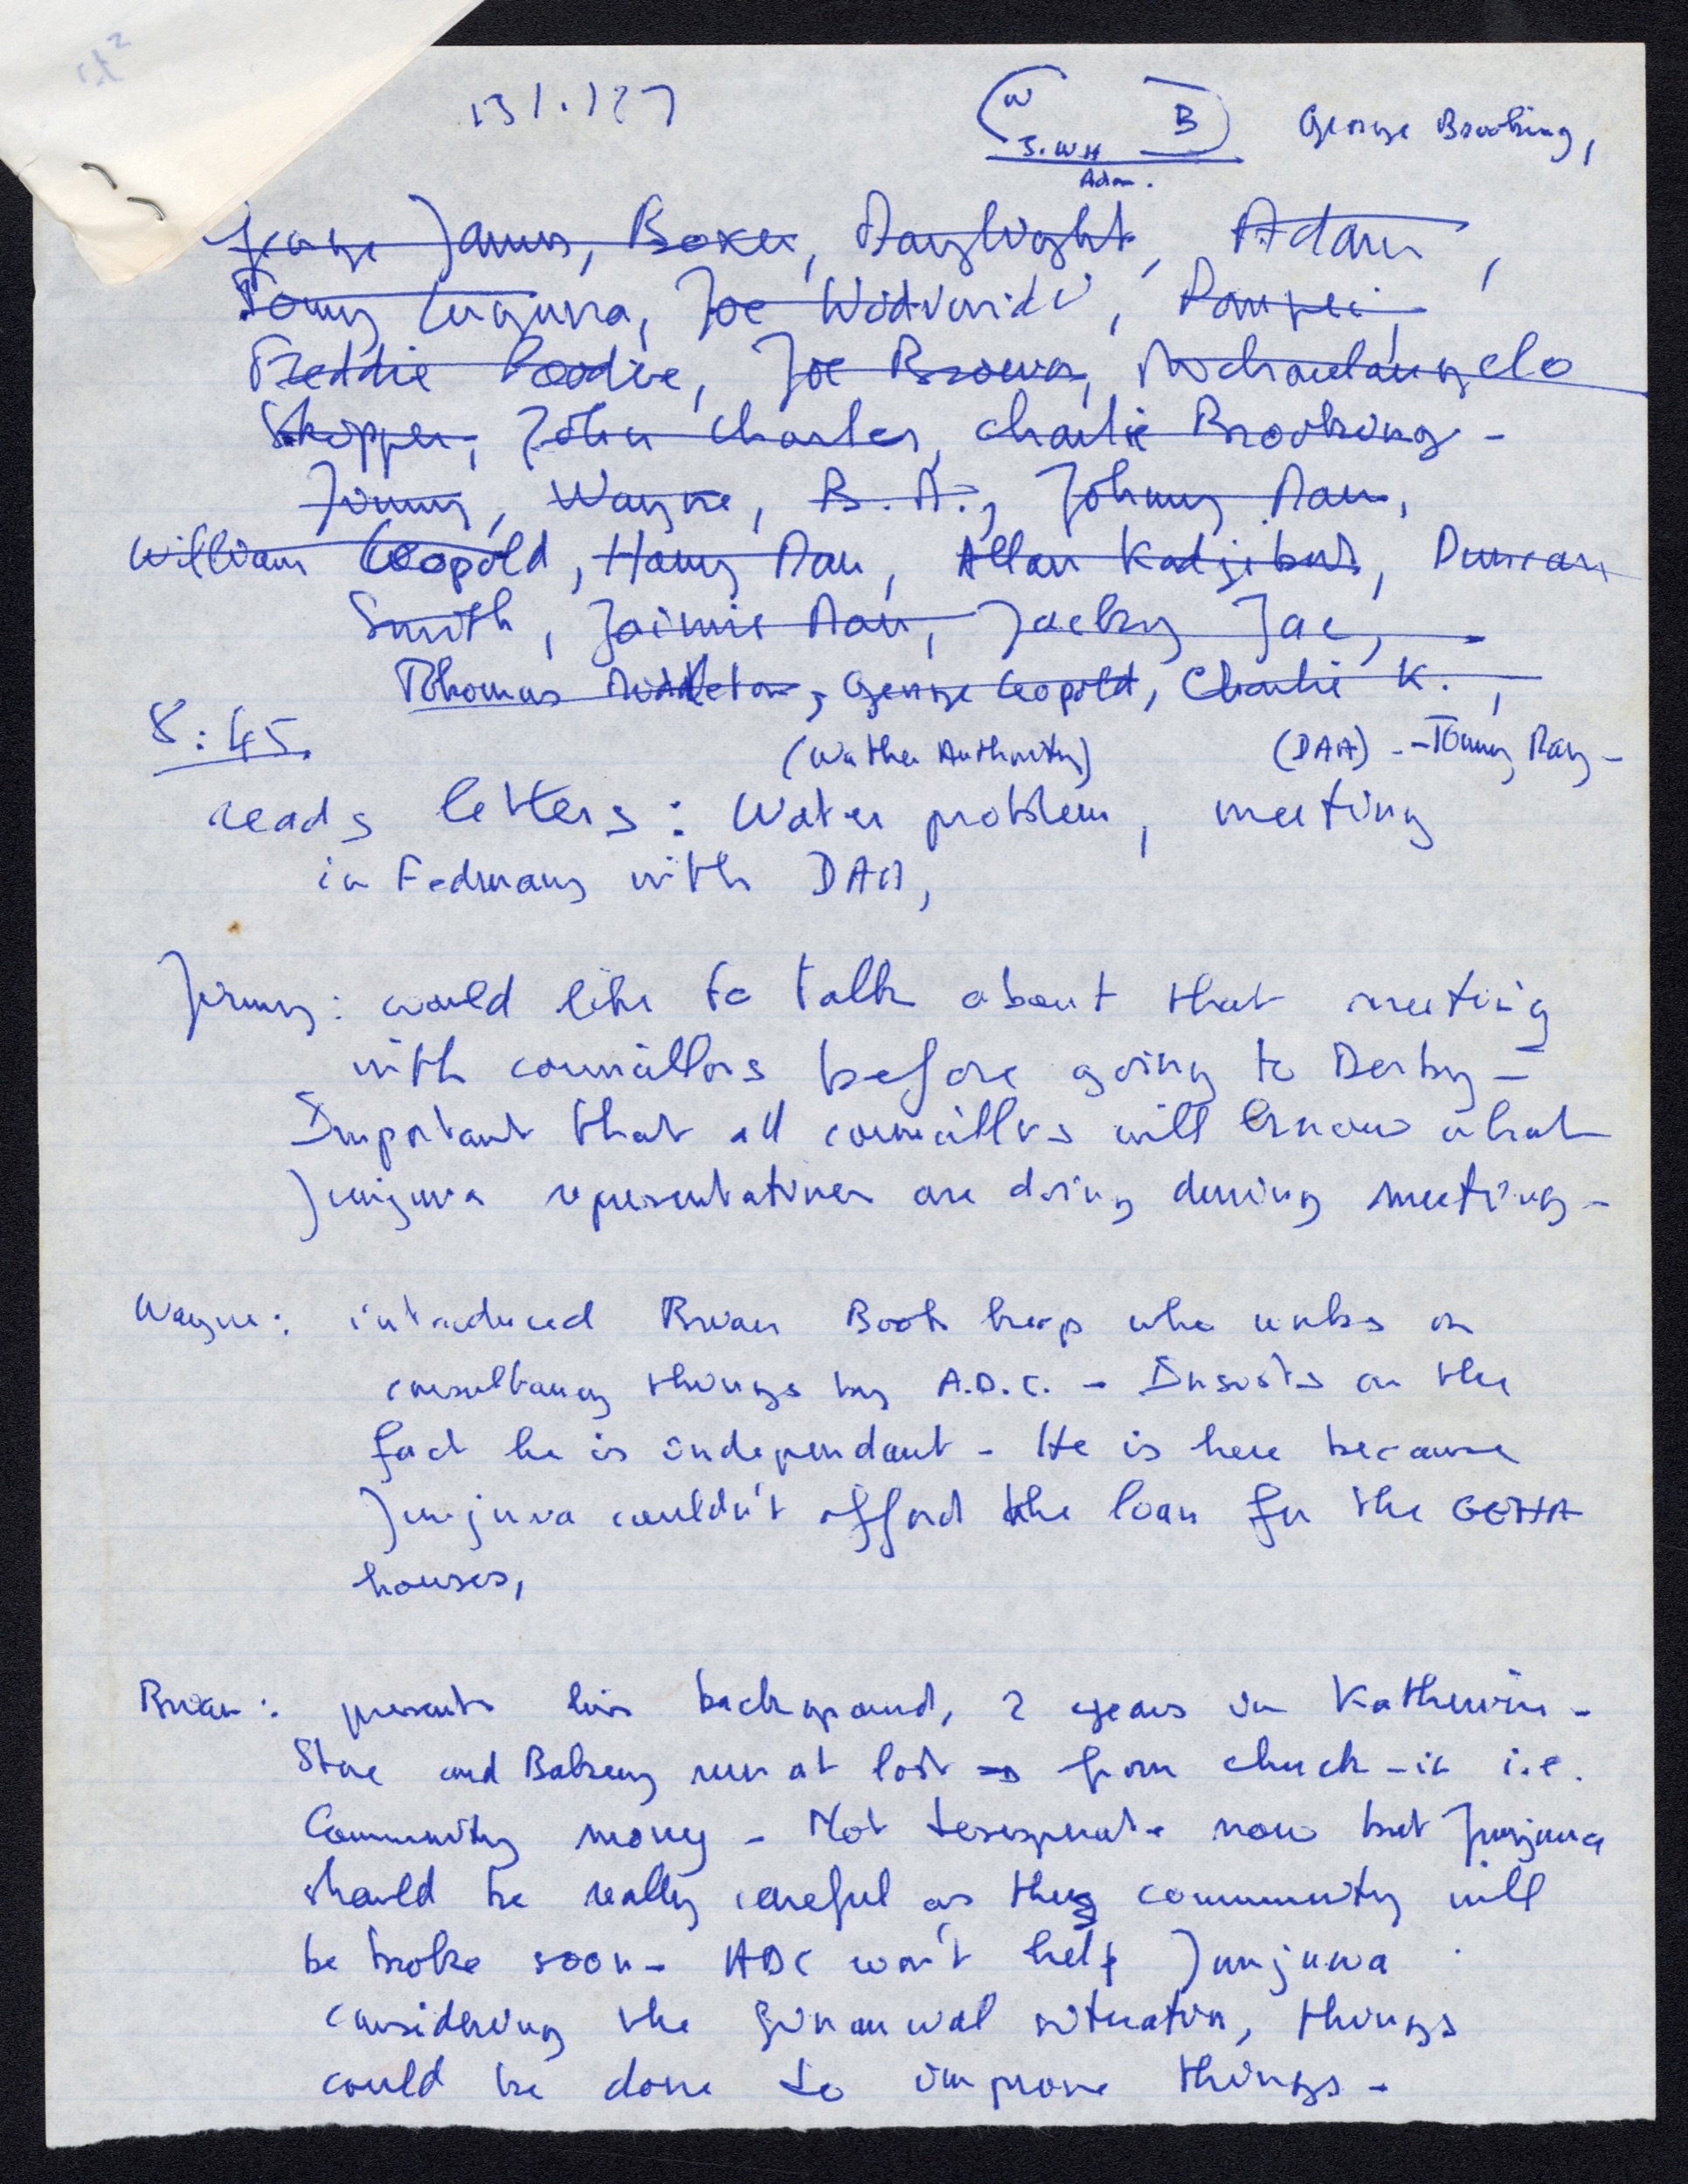 W B
J.WH
Adam.
George Brooking,
George James, Boxer, Daylight, Adam,
Tommy, Joe, Pompei,
Freddie, Joe Brown, Michaelangelo
Skipper, John Charles, Charlie Brooking -
Jimmy, Wayne, B. A., Johnny Dan,
William Leopold, Harry Dan, Allan Kadjibut, Duncan
Smith, Jaimie Dan, Jacky Jac,
Thomas Middleton, George Leopold, Charlie K.,
8:45.
(Wather Authority) (DAA) - - Tommy Ray -
reads letters: Water problem, meeting
in with DAA,
Jimmy: would like to talk about that meeting
with councillors before going to Derby -
Important that all councillors will know what
Junjuwa representatives are doing during meeting -
Wayne: introduced Brian who works on
consultancy things by A.D.C. - Insists on the
fact he is independant - He is here because
Junjuwa couldn't afford the loan for the GEHA
houses,
Brian: presents his background, 2 years in Katherine -
Store and Bakery run at lost → from chuck-in i.e.
Community money - Not now but Junjuwa
should be really careful as they community will
be broke soon - ADC won't help Junjuwa
considering the financial situation, things
could be done to improve things -